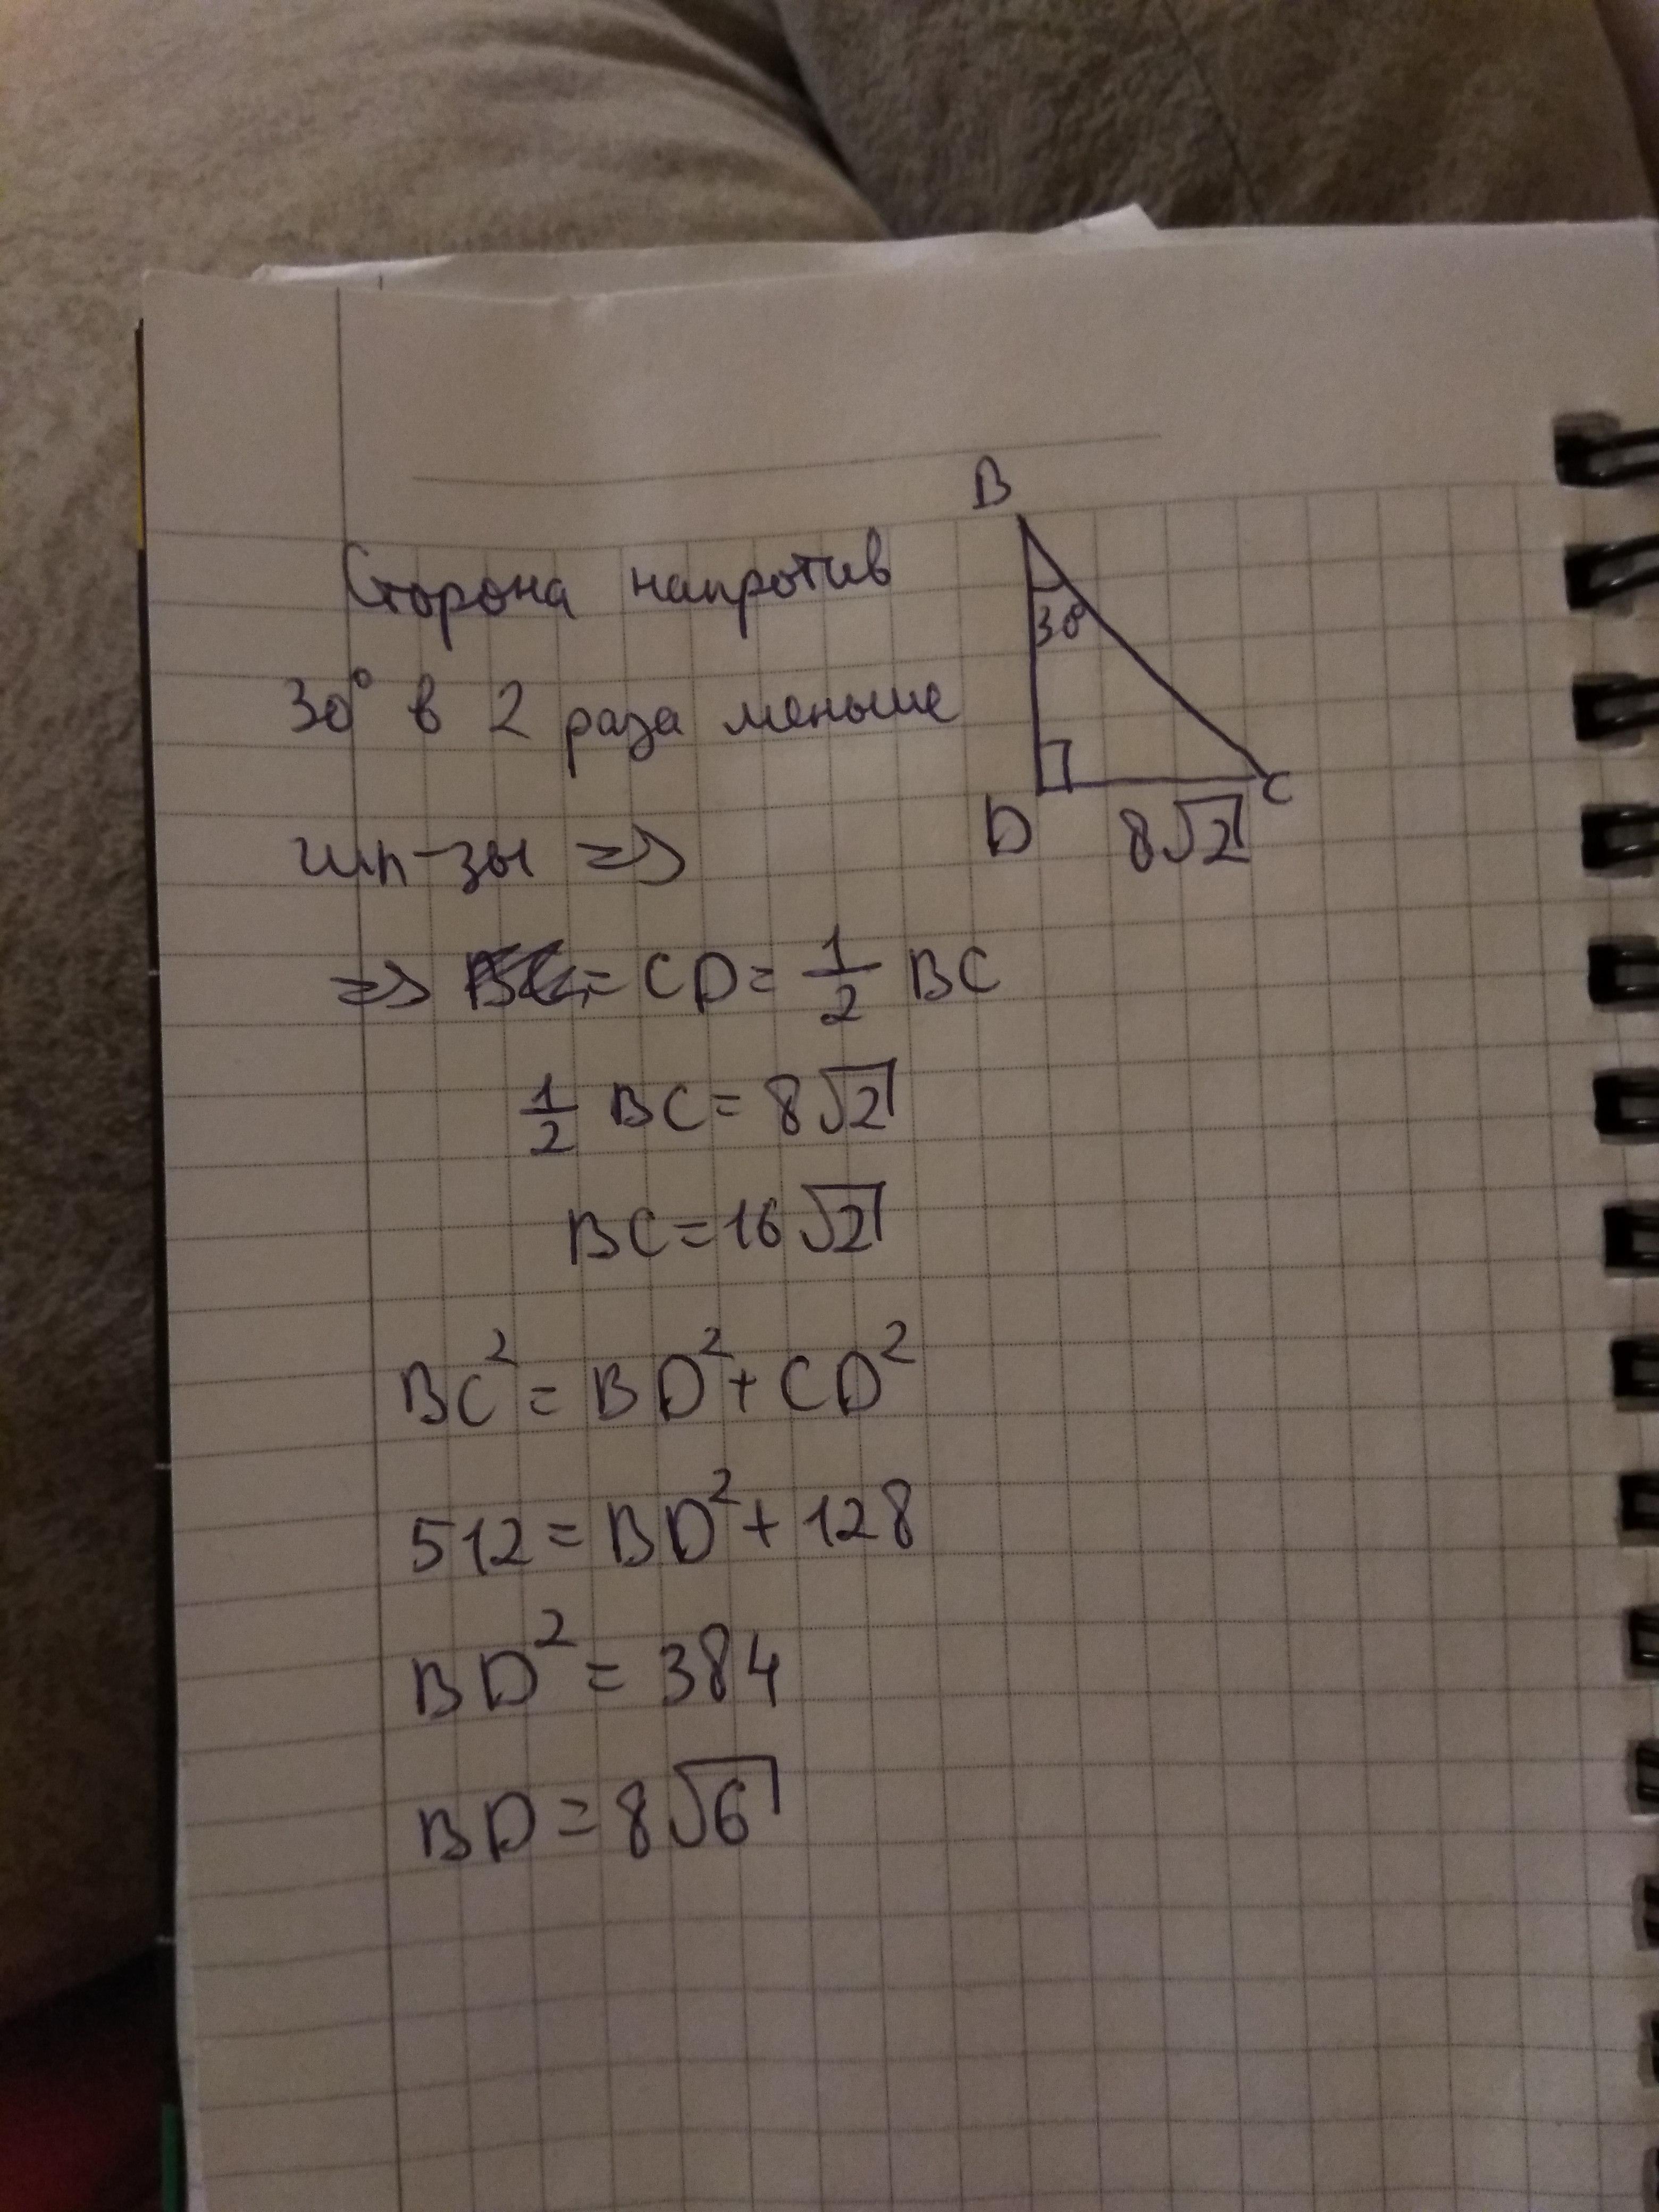 Сторона напротив
30° в 2 раза меньше
гип-зы =>
=> = CD = 1/2 BC
1/2 BC = 8√2
BC = 16√2
BC² = BD² + CD²
512 = BD² + 128
BD² = 384
BD = 8√6
B
30°
D
C
8√2